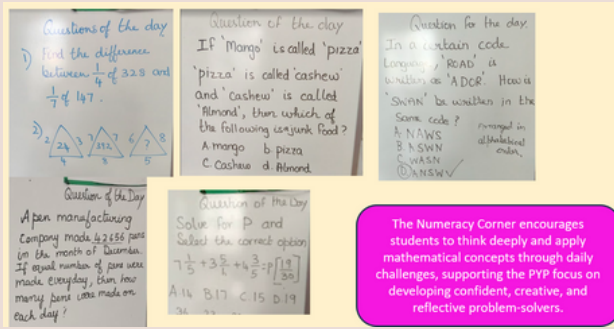 Questions of the day
1) Find the difference
between 1/4 of 328 and
1/7 of 147.
2) 2 24 3 7 7 6 ? 8
4 8 5
Question of the day
If 'Mango' is called 'pizza'
'pizza' is called 'cashew'
and 'cashew' is called
'Almond', then which of
the following is junk food?
A. mango b. pizza
C. Cashew d. Almond
Question for the day.
In a certain code
Language, 'ROAD' is
written as 'ADOR'. How is
'SWAN' be written in the
Same code?
A. NAWS
B ASWN
C. WASN
D ANSW ✓
arranged in
alphabetical
order.
Question of the Day
A pen manufacturing
Company made 42656 pens
in the month of December.
If equal number of pens were
made everyday, then how
many pens were made on
each day?
Question of the Day
Solve for P and
Select the correct option
7 1/5 + 3 5/6 + 4 3/5 = P [19/30]
A.14 B.17 C.15 D.19
The Numeracy Corner encourages
students to think deeply and apply
mathematical concepts through daily
challenges, supporting the PYP focus on
developing confident, creative, and
reflective problem-solvers.